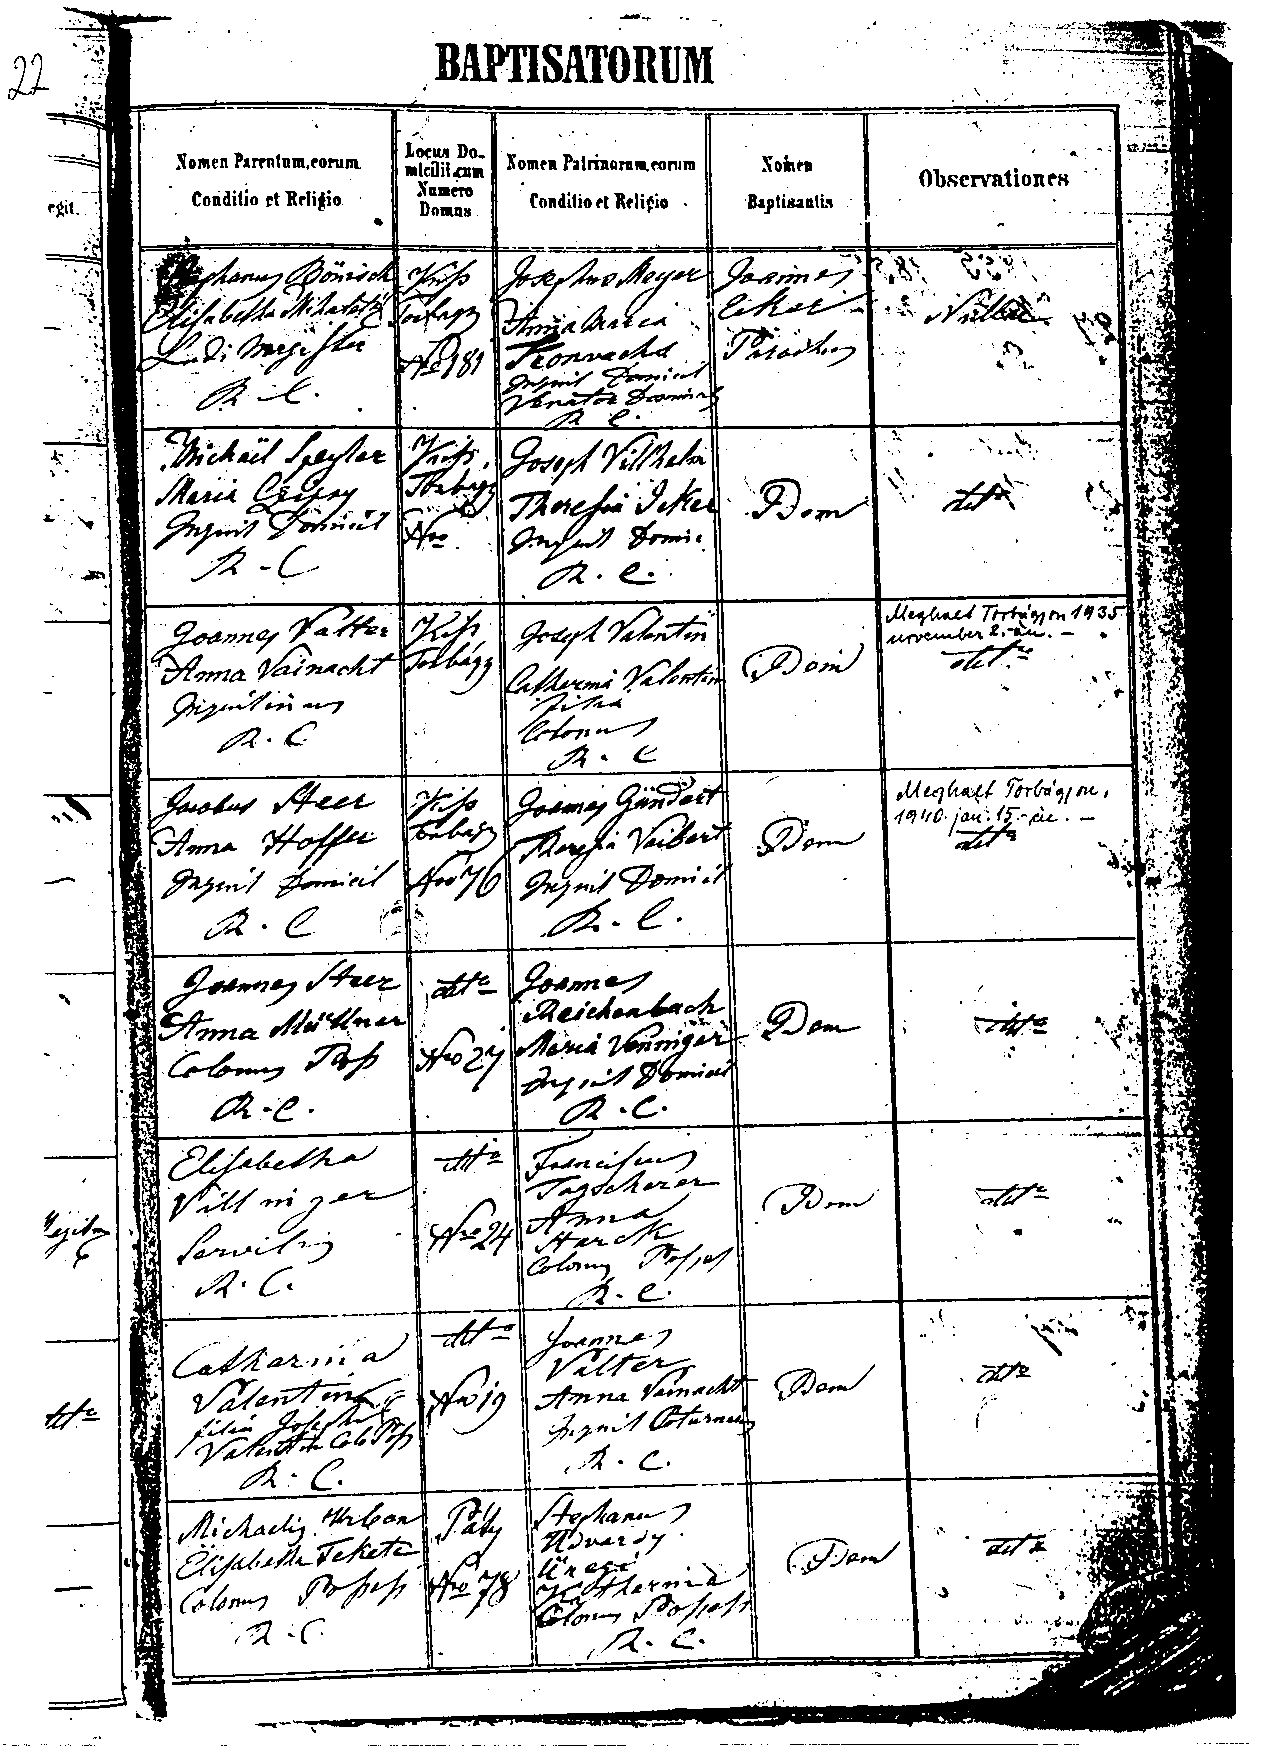 22
BAPTISATORUM
egit.
Nomen Parentum, eorum
Conditio et Religio
Locus Do-
micilii cum
Numero
Domus
Nomen Patrinorum, eorum
Conditio et Religio
Nomen
Baptisantis
Observationes
Stephanus Bönisch
Elisabetha
Ludi Magister
R. C.
Kiss
Torbagy
Nro 181
Josephus Meyer
Anna Maria
Inquil Domicil
Venator Domicil
R. C.
Joannes
Eeker
Parochus
Nullae
Michaël Spegler
Maria
Inquil Domicil
R. C
Kiss
Torbagy
Nro
Joseph Villhelm
Theresia Ieker
Inquil Domic.
R. C.
Dem
dtto
Joannes Valter
Anna Vainacht
Inquilinus
R. C
Kiss
Torbágy
Joseph Valentin
Catherina Valentin
filia
Colonus
R. C
Dem
Meghalt Torbágyon 1935
november 2.-án. -
dtto
Jacobus Heer
Anna Hoffer
Inquil Domicil
R. C
Kiss
Torbagy
Nro 76
Joannes Gündert
Theresia Veibert
Inquil Domicil
R. C.
Dem
Meghalt Torbágyon,
1940. jan. 15.-én. -
dtto
Joannes Heer
Anna Müllner
Colonus Poss
R. C.
dtto
Nro 27
Joannes
Reichenbach
Maria Venniger
Inquil Domicil
R. C.
Dem
dtto
Elisabetha
Villinger
Servilis
R. C.
dtto
Nro 24
Franciscus
Tagscherer
Anna
Harck
Colonus Possess
R. C.
Dem
dtto
Catharina
Valentin
filia Josephi
Valentin Colo Poss
R. C.
dtto
Nro 19
Joannes
Valter
Anna Vainacht
Inquil
R. C.
Dem
dtto
dtto
Michaelis Urban
Elisabetha Fekete
Colonus Possess
R. C
Páty
Nro 78
Stephanus
Udvardy
Üregi
Katharina
Colonus Possess
R. C.
Dem
dtto